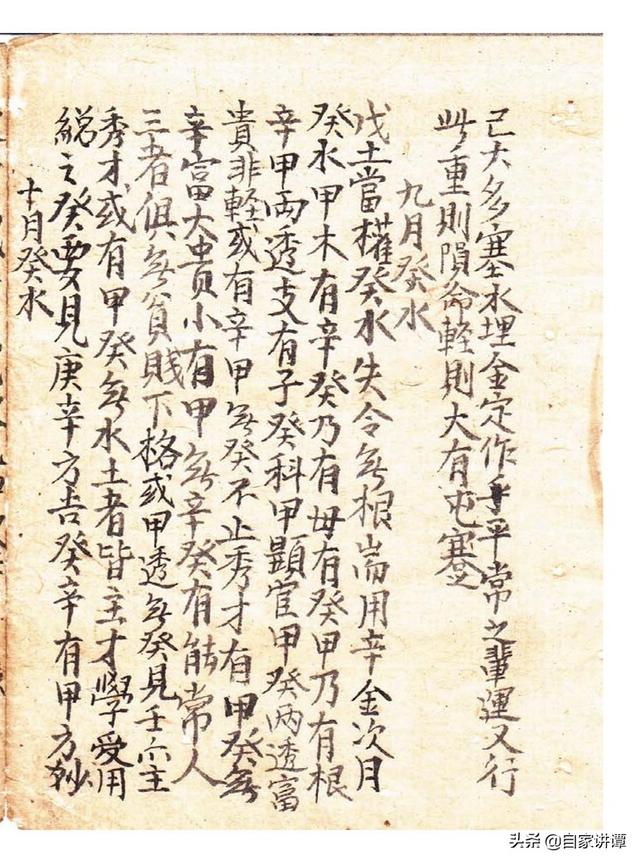 己大多塞水埋金定作乎平常之輩運又行
此重則隕命輕則大有屯蹇
九月癸水
戊土當權癸水失令無根耑用辛金次月
癸水甲木有辛癸乃有母有癸甲乃有根
辛甲両透支有子癸科甲顯宦甲癸两透富
貴非軽或有辛甲無癸不止秀才有甲癸無
辛富大貴小有甲無辛癸有能常人
三者俱無貧賤下格或甲透無癸見壬亦主
秀才或有甲癸無水土者皆主才學愛用
総之癸要見庚辛方吉癸辛有甲方妙
十月癸水
头条 @自家讲谭